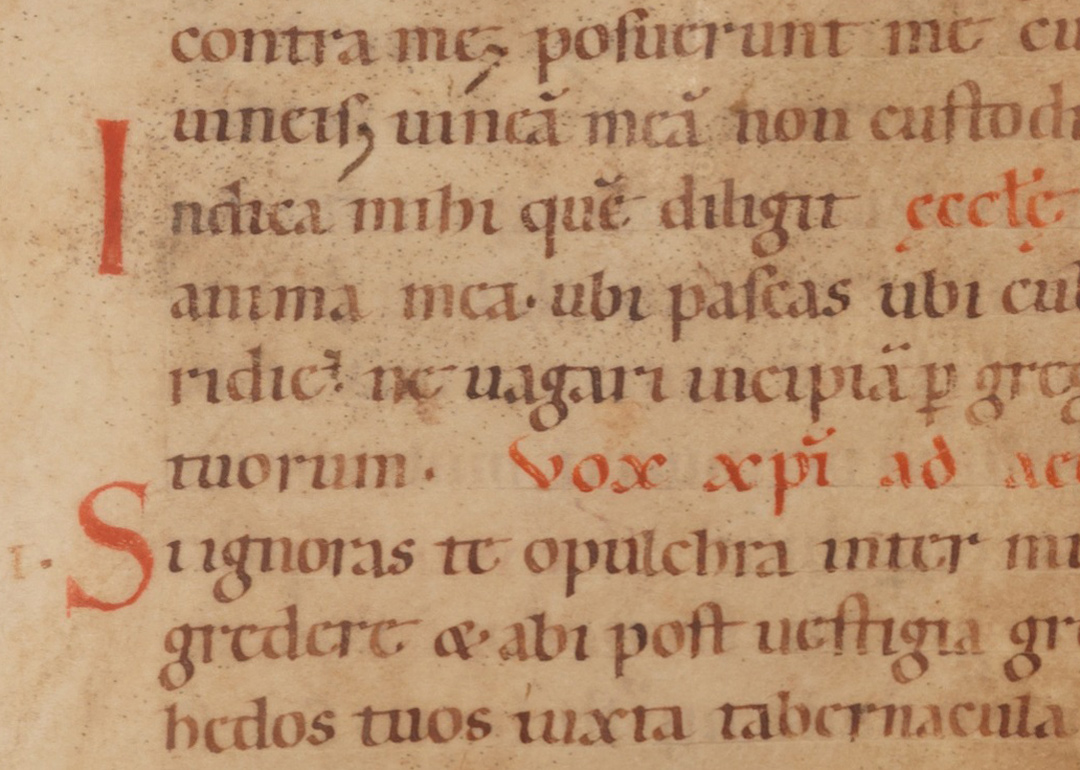 contra me, posuerunt me cu
uineis; uineā meā non custodi
Indica mihi quē diligit ęcclę
anima mea· ubi pascas ubi cub
ridie· ne uagari incipiā p̲ greg
tuorum· Vox xp̄i ad aec
Si ignoras te o pulchra inter mu
gredere & abi post uestigia gre
hedos tuos iuxta tabernacula